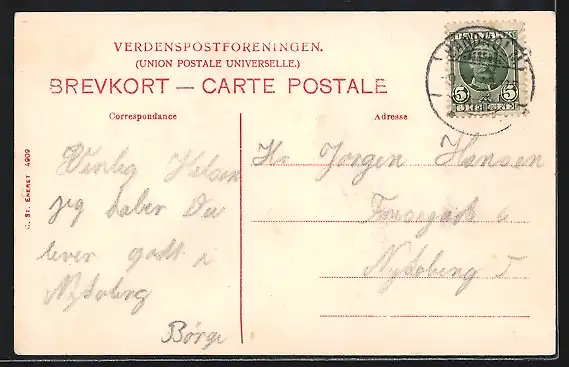 VERDENSPOSTFORENINGEN.
(UNION POSTALE UNIVERSELLE.)
BREVKORT — CARTE POSTALE
DANMARK
5 5
Correspondance
Adresse
St. ENERET 4909
Venlig Hilsen
jeg haber Du
lever godt i
Nykobing
Børge
Hr Jørgen Hansen
i
Nykobing F